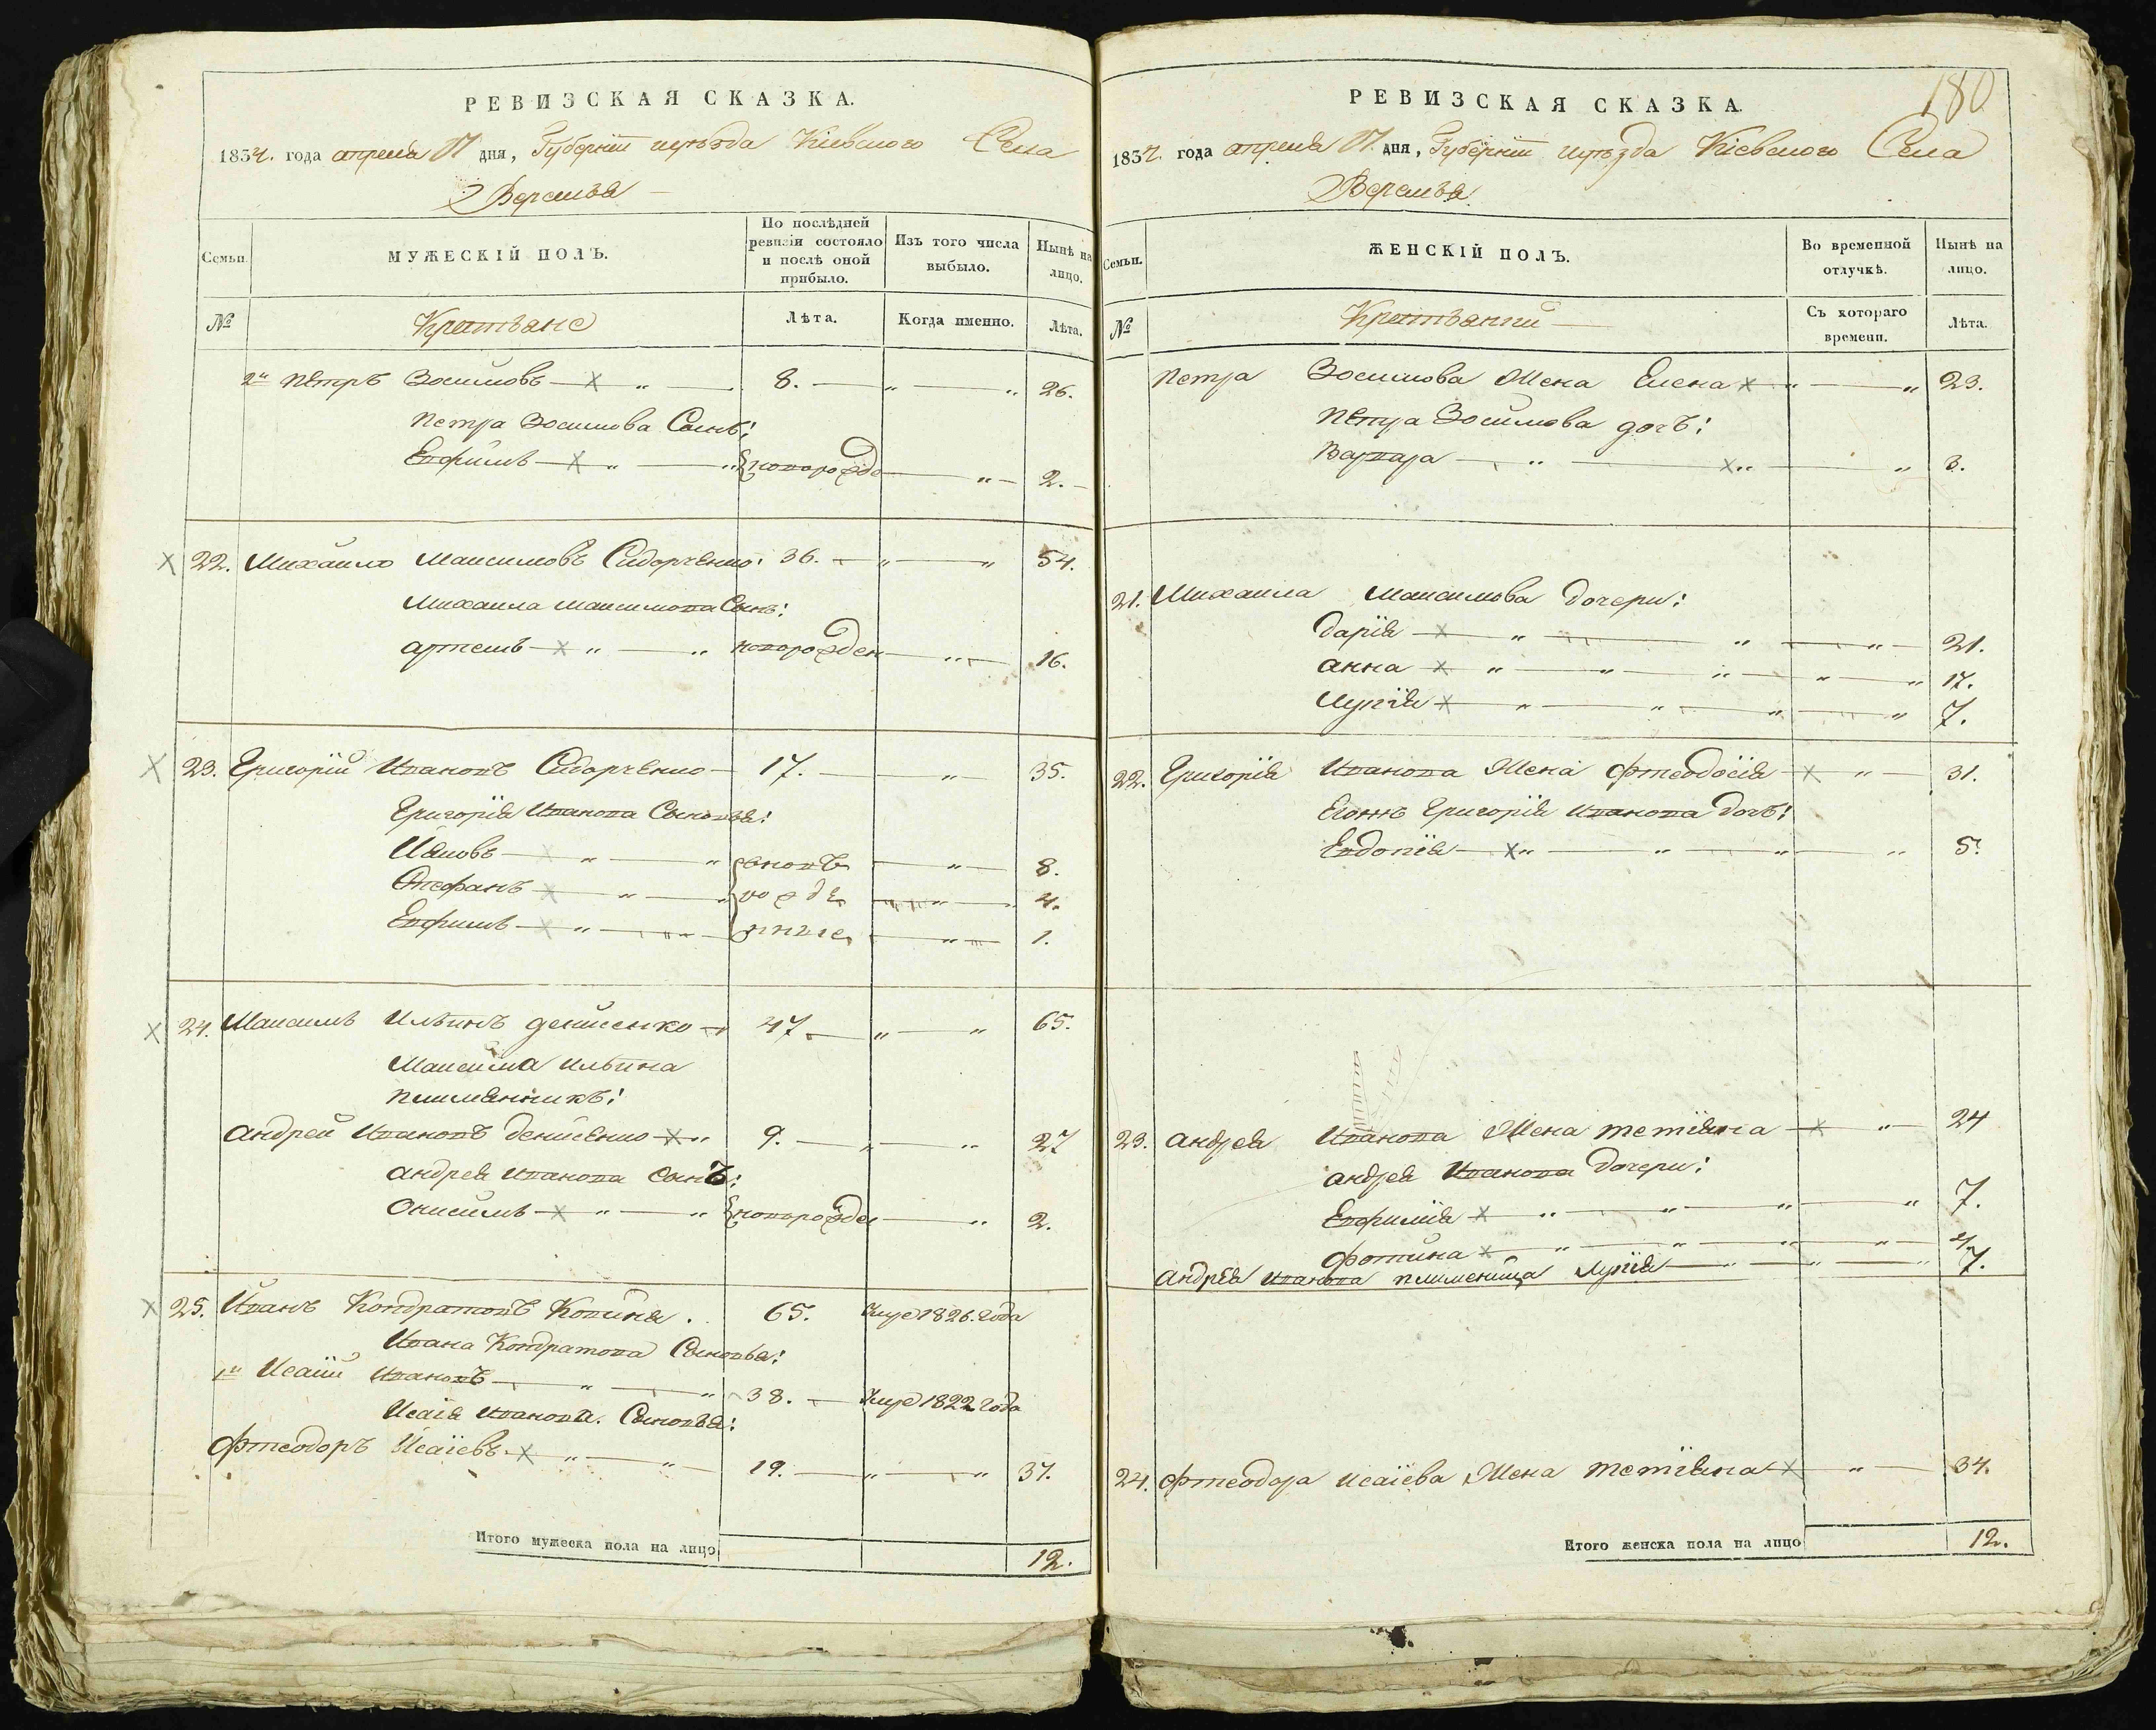 РЕВИЗСКАЯ СКАЗКА.
1834. года апреля 17 дня, Губерніи иуѣзда Кіевского Села
Веремья
Семьи.
МУЖЕСКІЙ ПОЛЪ.
По послѣдней ревизіи состояло и послѣ оной прибыло.
Изъ того числа выбыло.
Нынѣ на лицо.
№
Крестьяне
Лѣта.
Когда именно.
Лѣта.
2й Петръ Зосимовъ 8. 26.
Петра Зосимова Сынъ:
Евфимъ новорожде 2.
22. Михайло Максимовъ Сидорченко: 36. 54.
Михаила Максимова Сынъ:
Артемъ новорожден 16.
23. Григорій Ивановъ Сидорченко 17. 35.
Григорія Иванова Сыновья:
Яковъ 8.
Стефанъ 4.
Евфимъ 1.
24. Максимъ Ильинъ Денисенко 47 65.
Максима Ильина
племянникъ:
Андрей Ивановъ Денисенко 9. 27
Андрея Иванова Сынъ:
Онисимъ новорожде 2.
25. Иванъ Кондратовъ 65. умре 1826. года
Ивана Кондратова Сыновья:
1й Исаій Ивановъ 38. умре 1822 года
Исаія Иванова. Сыновья:
Фтеодоръ Исаіевъ 19. 37.
Итого мужеска пола на лицо 12.
180
РЕВИЗСКАЯ СКАЗКА.
1834. года апреля 17. дня, Губерніи иуѣзда Кіевского Села
Веремья
Семьи.
ЖЕНСКІЙ ПОЛЪ.
Во временной отлучкѣ.
Нынѣ на лицо.
№
Крестьянки
Съ котораго времени.
Лѣта.
Петра Зосимова Жена Елена 23.
Петра Зосимова дочъ:
Варвара 3.
21. Михаила Максимова Дочери:
Дарія 21.
Анна 17.
Лукія 7.
22. Григорія Иванова Жена Фтеодосія 31.
Егожъ Григорія Иванова Дочъ:
Евдокія 5.
23. Андрея Иванова Жена Тетіяна 24
Андрея Иванова Дочери:
Евфимія 7.
Фотина
Андрея Иванова племеница Лукія 7.
24. Фтеодора Исаіева Жена Тетіяна 34.
Итого женска пола на лицо 12.